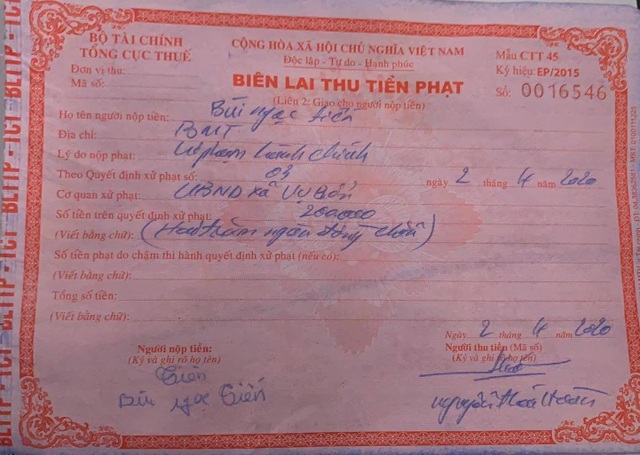 BỘ TÀI CHÍNH
TỔNG CỤC THUẾ
Đơn vị thu:
Mã số:
CỘNG HÒA XÃ HỘI CHỦ NGHĨA VIỆT NAM
Độc lập - Tự do - Hạnh phúc
BIÊN LAI THU TIỀN PHẠT
(Liên 2: Giao cho người nộp tiền)
Mẫu CTT 45
Ký hiệu: EP/2015
Số: 0016546
Họ tên người nộp tiền: Bùi Ngọc Tiến
Địa chỉ: BMT
Lý do nộp phạt: Vi phạm hành chính
Theo Quyết định xử phạt số: 03 ngày 2 tháng 4 năm 2020
Cơ quan xử phạt: UBND xã Vụ Bổn
Số tiền trên quyết định xử phạt: 200.000
(Viết bằng chữ): (Hai trăm ngàn đồng chẵn)
Số tiền phạt do chậm thi hành quyết định xử phạt (nếu có):
(Viết bằng chữ):
Tổng số tiền:
(Viết bằng chữ):
Ngày 2 tháng 4 năm 2020
Người nộp tiền:
(Ký và ghi rõ họ tên)
Tiến
Bùi Ngọc Tiến
Người thu tiền (Mã số)
(Ký và ghi rõ họ tên)
Nguyễn
BLTTP - TCT - BLTTP - TCT - BLTTP - TCT